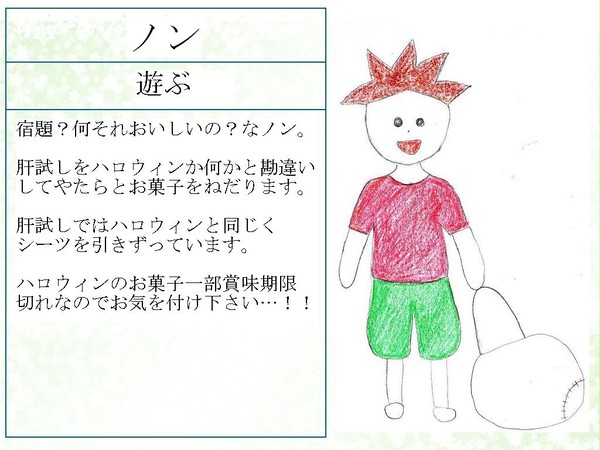 ノン
遊ぶ
宿題？何それおいしいの？なノン。
肝試しをハロウィンか何かと勘違い
してやたらとお菓子をねだります。
肝試しではハロウィンと同じく
シーツを引きずっています。
ハロウィンのお菓子一部賞味期限
切れなのでお気を付け下さい…！！